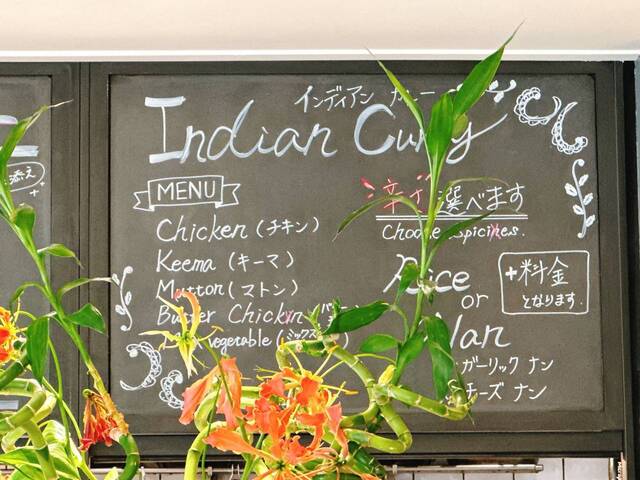 添え
インディアン カー
Indian Curry
MENU
Chicken (チキン)
Keema (キーマ)
Mutton (マトン)
Butter Chicken
vegetable (ミックス
辛 選べます
Choose spicixes.
Rice
or
Nan
+料金
となります.
ガーリック ナン
チーズ ナン